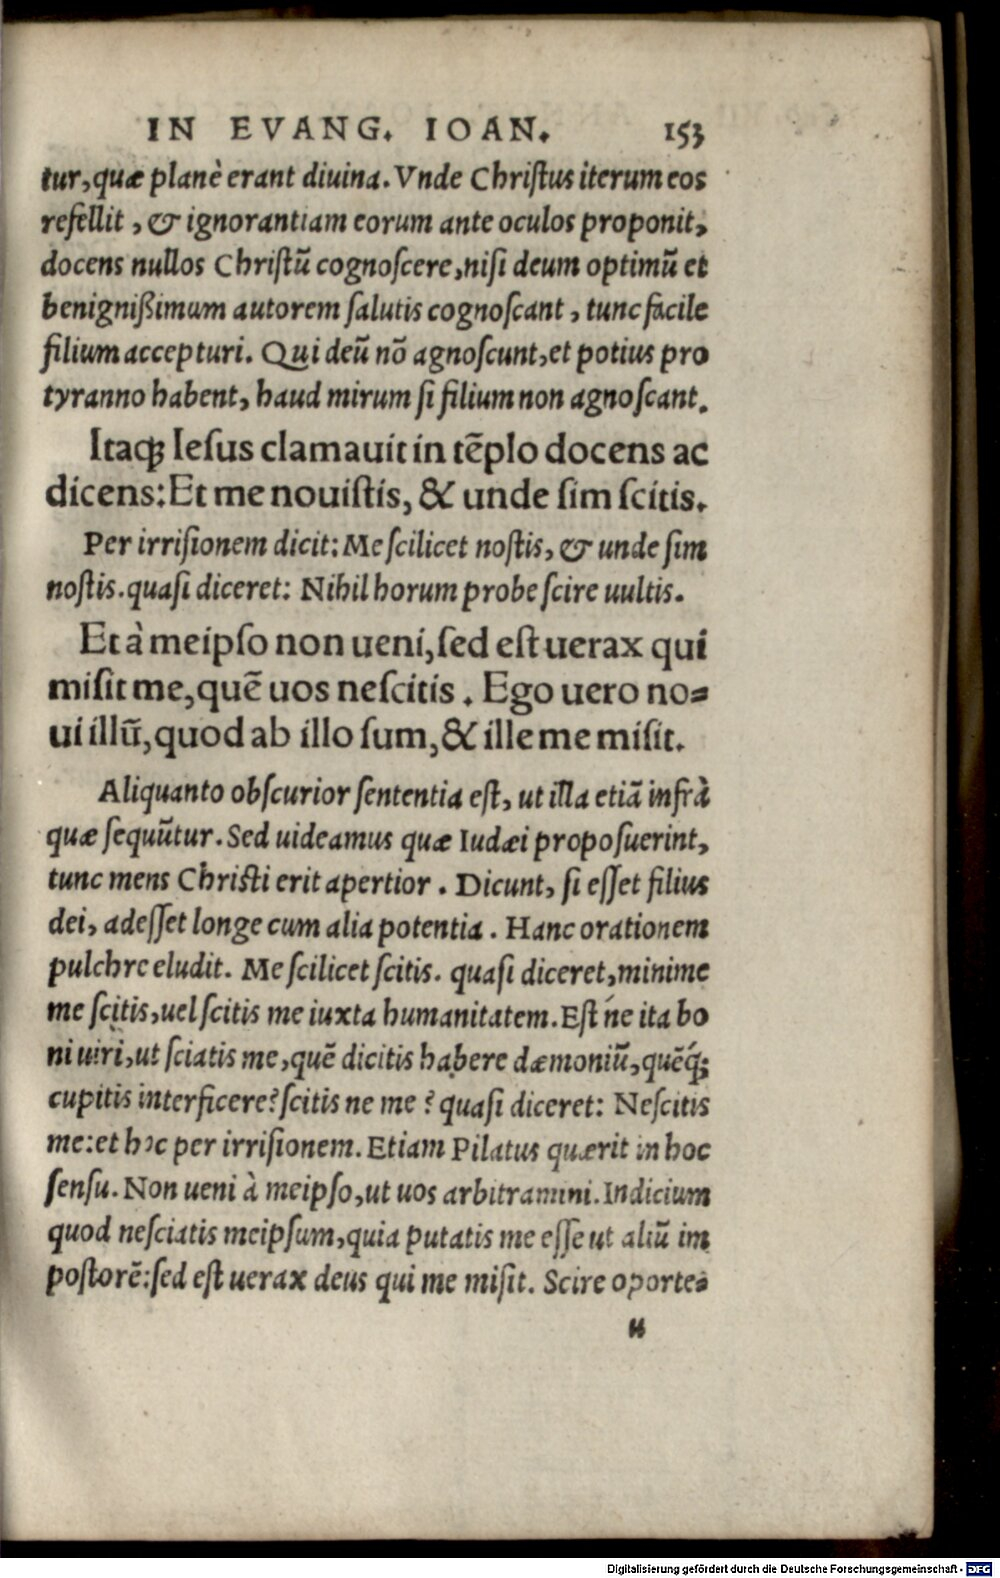 IN EVANG. IOAN. 153
tur, quæ planè erant diuina. Vnde Chriſtus iterum eos
refellit, & ignorantiam eorum ante oculos proponit,
docens nullos Chriſtū cognoſcere, niſi deum optimū et
benignißimum autorem ſalutis cognoſcant, tunc facile
filium accepturi. Qui deū nō agnoſcunt, et potius pro
tyranno habent, haud mirum ſi filium non agnoſcant.
Itaq; Ieſus clamauit in tēplo docens ac
dicens: Et me nouiſtis, & unde ſim ſcitis.
Per irriſionem dicit: Me ſcilicet noſtis, & unde ſim
noſtis. quaſi diceret: Nihil horum probe ſcire uultis.
Et à meipſo non ueni, ſed eſt uerax qui
miſit me, quē uos neſcitis. Ego uero no=
ui illū, quod ab illo ſum, & ille me miſit.
Aliquanto obſcurior ſententia eſt, ut illa etiā infrà
quæ ſequūtur. Sed uideamus quæ Iudæi propoſuerint,
tunc mens Chriſti erit apertior. Dicunt, ſi eſſet filius
dei, adeſſet longe cum alia potentia. Hanc orationem
pulchre eludit. Me ſcilicet ſcitis. quaſi diceret, minime
me ſcitis, uel ſcitis me iuxta humanitatem. Eſt ńe ita bo
ni uiri, ut ſciatis me, quē dicitis habere dæmoniū, quēq́;
cupitis interficere? ſcitis ne me? quaſi diceret: Neſcitis
me: et hoc per irriſionem. Etiam Pilatus quærit in hoc
ſenſu. Non ueni à meipſo, ut uos arbitramini. Indicium
quod neſciatis meipſum, quia putatis me eſſe ut aliū im
poſtorē: ſed eſt uerax deus qui me miſit. Scire oporte=
Digitalisierung gefördert durch die Deutsche Forschungsgemeinschaft - DFG